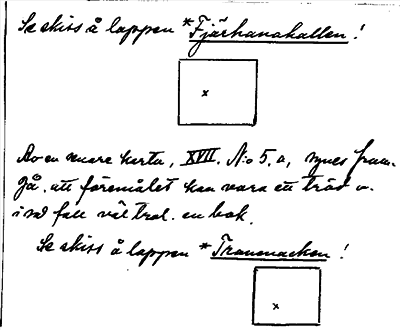 Se skiss å lappen *Fjärhanahallen!
Av en senare karta, XVII. N:o 5, a, synes fram-
gå, att föremålet kan vara ett träd o.
i så fall väl trol. en bok.
Se skiss å lappen *Tranemacken!